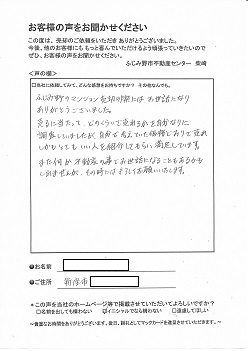 お客様の声をお聞かせください
この度は、売却のご依頼をいただき ありがとうございました。
今後、他のお客様にももっと喜んでいただけるよう頑張っていきたいので
ぜひ、お客様の声をお聞かせください。
ふじみ野市不動産センター 柴崎
<声の欄>
□当社に依頼してみて、どんな感想をお持ちですか? その他なんでも。
ふじみ野のマンション売却の際にはお世話になり
ありがとうございました。
売るに当たって、どのくらいで売れるかを自分なりに
調査していましたが、自分で考えていた価格どおりで売れ
しかもとってもいい人を紹介してもらい満足しています。
また何か不動産の事でお世話になることもあるかも
しれませんが、その時にはよろしくお願いいたします。
❶お名前
❷ご住所 新座市
★この声を当社のホームページ等で掲載させていただいてよろしいですか?
□名前を出しても構わない ☑イニシャルでなら構わない □遠慮してほしい
～貴重なお時間をありがとうございます。後日、謝礼としてマックカードを進呈させていただきます。～